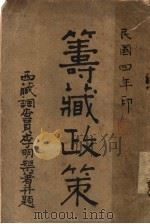 民國四年印
籌藏政策
西藏調查員李明榘著并題